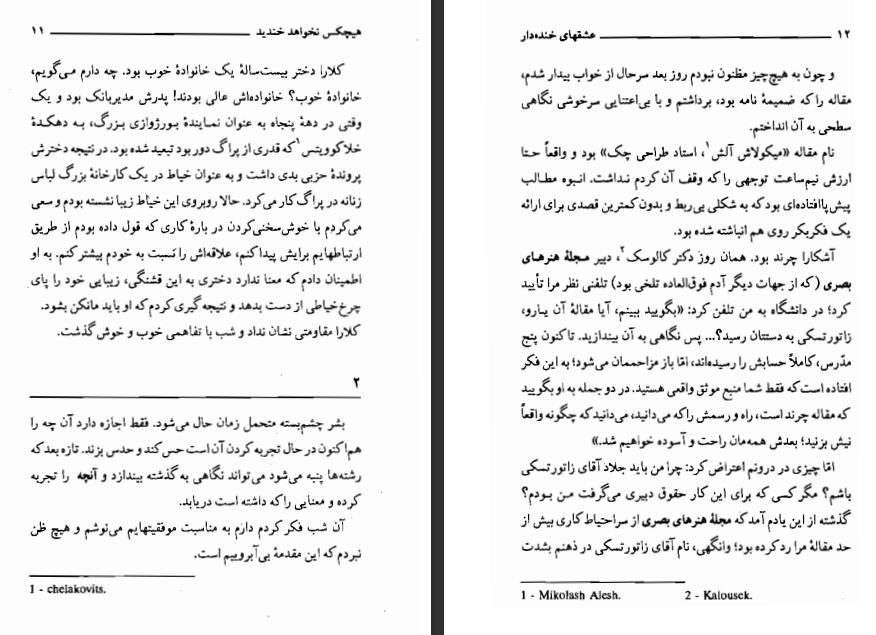 هیچکس نخواهد خندید ۱۱
کلارا دختر بیست‌سالهٔ یک خانوادهٔ خوب بود. چه دارم می‌گویم،
خانوادهٔ خوب؟ خانواده‌اش عالی بودند! پدرش مدیربانک بود و یک
وقتی در دههٔ پنجاه به عنوان نمایندهٔ بورژوازی بزرگ، به دهکدهٔ
خلاکوویتس۱ که قدری از پراگ دور بود تبعید شده بود. در نتیجه دخترش
پروندهٔ حزبی بدی داشت و به عنوان خیاط در یک کارخانهٔ بزرگ لباس
زنانه در پراگ کار می‌کرد. حالا روبروی این خیاط زیبا نشسته بودم و سعی
می‌کردم با خوش‌سخنی‌کردن در بارهٔ کاری که قول داده بودم از طریق
ارتباطهایم برایش پیدا کنم، علاقه‌اش را نسبت به خودم بیشتر کنم. به او
اطمینان دادم که معنا ندارد دختری به این قشنگی، زیبایی خود را پای
چرخ‌خیاطی از دست بدهد و نتیجه گیری کردم که او باید مانکن بشود.
کلارا مقاومتی نشان نداد و شب با تفاهمی خوب و خوش گذشت.
۲
بشر چشم‌بسته متحمل زمان حال می‌شود. فقط اجازه دارد آن چه را
هم‌اکنون در حال تجربه کردن آن است حس کند و حدس بزند. تازه بعد که
رشته‌ها پنبه می‌شود می‌تواند نگاهی به گذشته بیندازد و آنچه را تجربه
کرده و معنایی را که داشته است دریابد.
آن شب فکر کردم دارم به مناسبت موفقیتهایم می‌نوشم و هیچ ظن
نبردم که این مقدمهٔ بی‌آبروییم است.
1 - chelakovits.
۱۲ عشقهای خنده‌دار
و چون به هیچ‌چیز مظنون نبودم روز بعد سرحال از خواب بیدار شدم،
مقاله را که ضمیمهٔ نامه بود، برداشتم و با بی‌اعتنایی سرخوشی نگاهی
سطحی به آن انداختم.
نام مقاله «میکولاش آلش۱، استاد طراحی چک» بود و واقعاً حتا
ارزش نیم‌ساعت توجهی را که وقف آن کردم نداشت. انبوه مطالب
پیش‌پاافتاده‌ای بود که به شکلی بی‌ربط و بدون کمترین قصدی برای ارائه
یک فکر بکر روی هم انباشته شده بود.
آشکارا چرند بود. همان روز دکتر کالوسک۲، دبیر مجلهٔ هنرهای
بصری (که از جهات دیگر آدم فوق‌العاده تلخی بود) تلفنی نظر مرا تأیید
کرد؛ در دانشگاه به من تلفن کرد: «بگویید ببینم، آیا مقالهٔ آن یارو،
زاتورتسکی به دستتان رسید؟... پس نگاهی به آن بیندازید. تاکنون پنج
مدّرس، کاملاً حسابش را رسیده‌اند، امّا باز مزاحممان می‌شود؛ به این فکر
افتاده است که فقط شما منبع موثق واقعی هستید. در دو جمله به او بگویید
که مقاله چرند است، راه و رسمش را که می‌دانید، می‌دانید که چگونه واقعاً
نیش بزنید؛ بعدش همه‌مان راحت و آسوده خواهیم شد.»
امّا چیزی در درونم اعتراض کرد: چرا من باید جلاد آقای زاتورتسکی
باشم؟ مگر کسی که برای این کار حقوق دبیری می‌گرفت من بودم؟
گذشته از این یادم آمد که مجلهٔ هنرهای بصری از سراحتیاط کاری بیش از
حد مقالهٔ مرا رد کرده بود؛ وانگهی، نام آقای زاتورتسکی در ذهنم بشدت
1 - Mikolash Alesh. 2 - Kalousek.